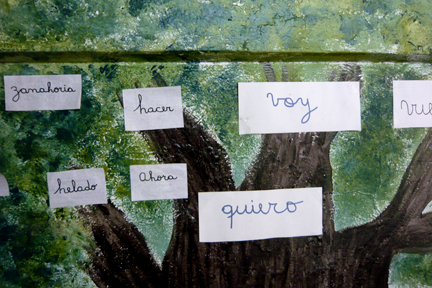 zanahoria
hacer
voy
helado
ahora
quiero